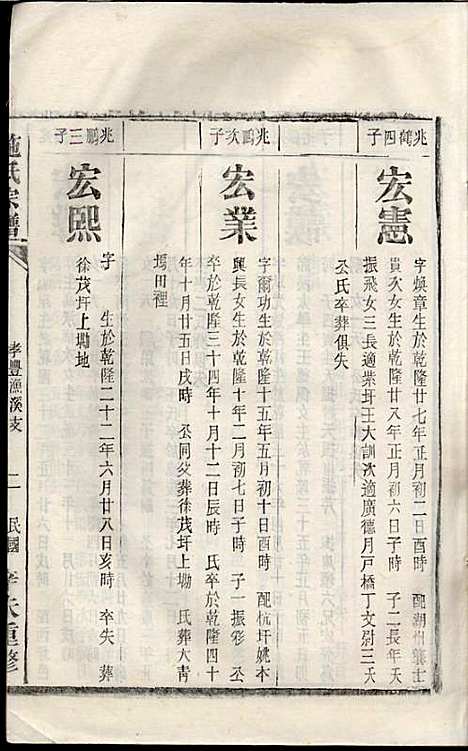 兆鶴四子
宏憲
字煥章生於乾隆廿七年正月初二日酉時 配湖州葉士
貴次女生於乾隆廿八年正月初六日子時 子二長年天
振飛女三長適紫圩王大訓次適廣德月戸橋丁文尉三天
公氏卒葬俱失
兆鵬次子
宏業
字爾功生於乾隆十五年五月初十日酉時 配杭圩姚本
興長女生於乾隆十年二月初七日子時 子一振彩 公
卒於乾隆三十四年十月十二日辰時 氏卒於乾隆四十
年十月廿五日戌時 公同父葬徐茂圩上塲 氏葬大青
塢田裡
兆鵬三子
宏熙
字 生於乾隆二十二年六月廿八日亥時 卒失 葬
徐茂圩上塲地
施氏宗譜
孝豐漁溪支
二
民國
氏重修